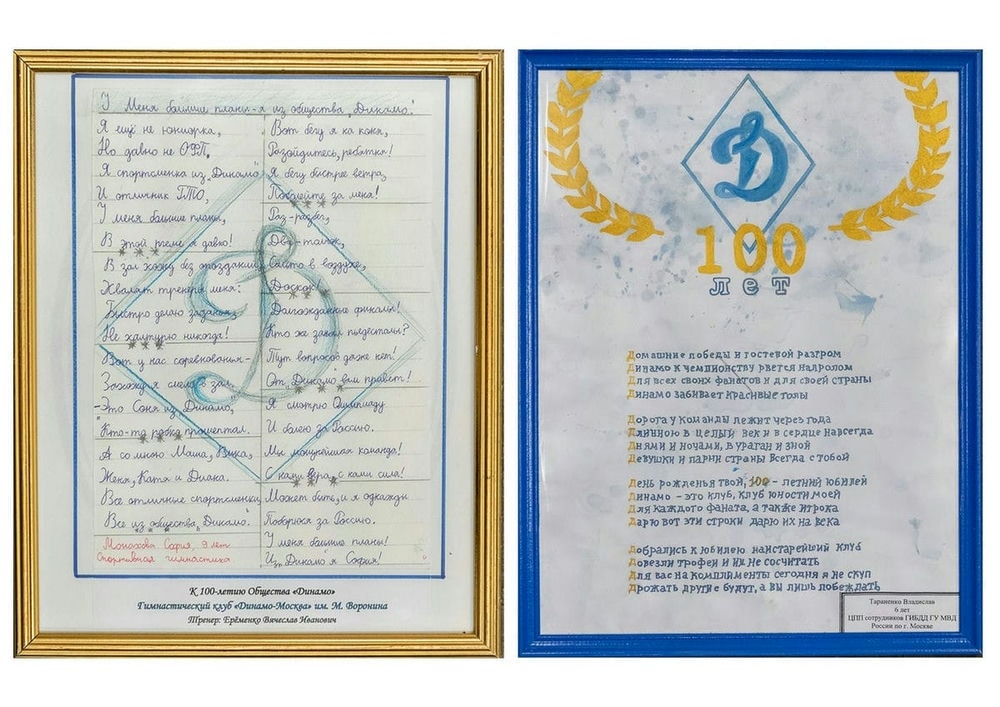 У меня большие планы - я из общества "Динамо".
Я ещё не юниорка,
Но давно не ОФП.
Я спортсменка из "Динамо"
И отличник ГТО,
У меня большие планы,
В этой теме я давно!
***
В зал хожу без опозданий,
Хвалят тренеры меня:
Быстро делаю задания,
Не халтурю никогда!
***
Вот у нас соревнования -
Захожу я смело в зал.
- Это Соня из "Динамо",
Кто-то робко прошептал.
***
А со мною Маша, Вика,
Женя, Катя и Диана.
Все отличные спортсменки,
Все из общества "Динамо".
Монахова София, 9 лет
Спортивная гимнастика
Вот бегу я на коня,
Разойдитесь, ребятня!
Я бегу быстрее ветра,
Поболейте за меня!
***
Раз-разбег,
Два-толчок,
Сальто в воздухе,
Доскок!
***
Долгожданные финалы!
Кто же занял пьедесталы?
Тут вопросов даже нет!
От "Динамо" вам привет!
***
Я смотрю Олимпиаду
И болею за Россию.
Мы мощнейшая команда!
С нами вера, с нами сила!
***
Может быть, и я однажды
Поборюсь за Россию.
У меня большие планы!
Из "Динамо" я София!
К 100-летию Общества «Динамо»
Гимнастический клуб «Динамо-Москва» им. М. Воронина
Тренер: Ерёменко Вячеслав Иванович
Д
100
лет
Домашние победы и гостевой разгром
Динамо к чемпионству рвется напролом
Для всех своих фанатов и для своей страны
Динамо забивает красивые голы
Дорога у команды лежит через года
Длинною в целый век и в сердце навсегда
Днями и ночами, в ураган и зной
Девушки и парни страны всегда с тобой
День рожденья твой, 100 - летний юбилей
Динамо - это клуб, клуб юности моей
Для каждого фаната, а также игрока
Дарю вот эти строки дарю их на века
Добрались к юбилею наистарейший клуб
Довезли трофеи и их не сосчитать
Для вас на комплименты сегодня я не скуп
Дрожать другие будут, а вы лишь побеждать
Тараненко Владислав
6 лет
ЦПП сотрудников ГИБДД ГУ МВД
России по г. Москве